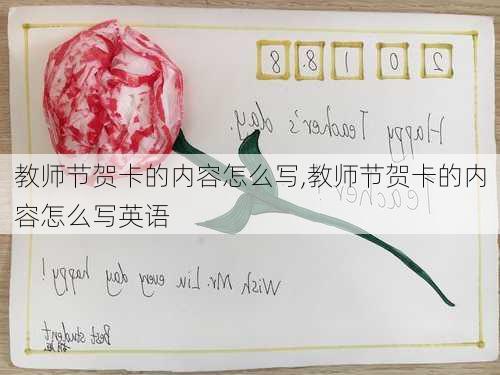 2 0 1 8. 8
Happy Teacher's day.
教师节贺卡的内容怎么写,教师节贺卡的内
容怎么写英语
Teacher
Wish Mr. Liu every day happy!
Best student